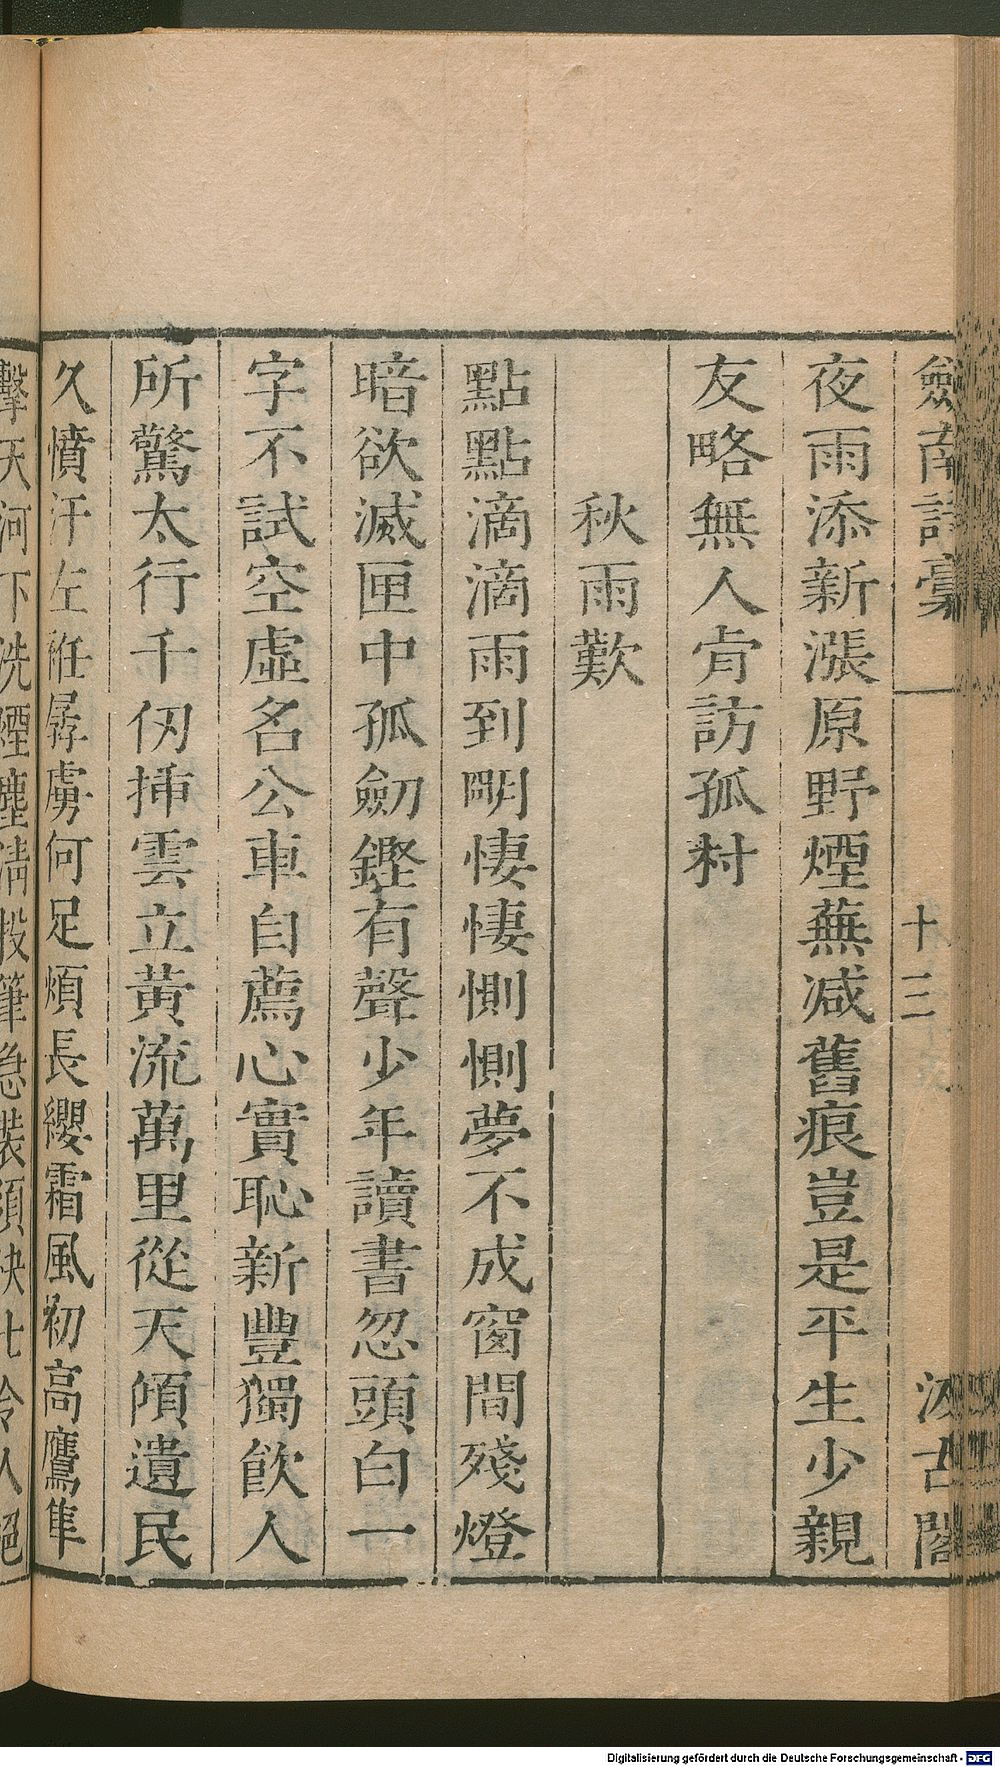 劒南詩稾 十三 汲古閣
夜雨添新漲原野煙蕪減舊痕豈是平生少親
友略無人肯訪孤村
秋雨歎
點點滴滴雨到明悽悽惻惻夢不成窗間殘燈
暗欲滅匣中孤劒鏗有聲少年讀書忽頭白一
字不試空虛名公車自薦心實恥新豐獨飲人
所驚太行千仞揷雲立黃流萬里從天傾遺民
久憤汗左衽孱虜何足煩長纓霜風初高鷹隼
擊天河下洗煙塵清投筆急裝須快士令人絕
Digitalisierung gefördert durch die Deutsche Forschungsgemeinschaft - DFG